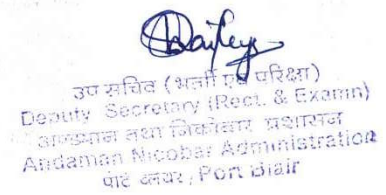 उप सचिव (भर्ती एवं परिक्षा)
Deputy Secretary (Rect. & Examn)
अण्डमान तथा निकोबार प्रशासन
Andaman Nicobar Administration
पोर्ट ब्लयर, Port Blair